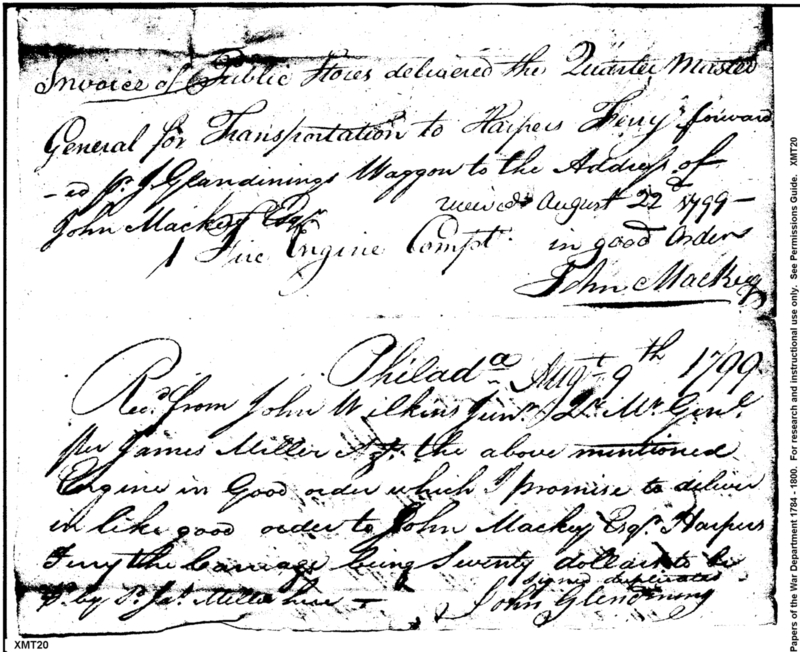 Invoice of Public Stores delivered the Quarter Master
General for Transportation to Harpers Ferry forward
-ed pr J. Glandinings Waggon to the Address of
John Mackey Esqr.
received August 22d 1799 -
1 Fire Engine Compt. in good order
John Mackey
Philada. Augt. 9th 1799
Recd. from John Wilkins Junr. Qr. Mr. Genl.
per James Miller the above mentioned
Engine in Good order which I promise to deliver
in like good order to John Mackey Esqr. Harpers
Ferry the Carriage being Seventy dollars to be
pd. by Jas. Miller here -
signed duplicates
John Glendining
XMT20
Papers of the War Department 1784 - 1800. For research and instructional use only. See Permissions Guide. XMT20